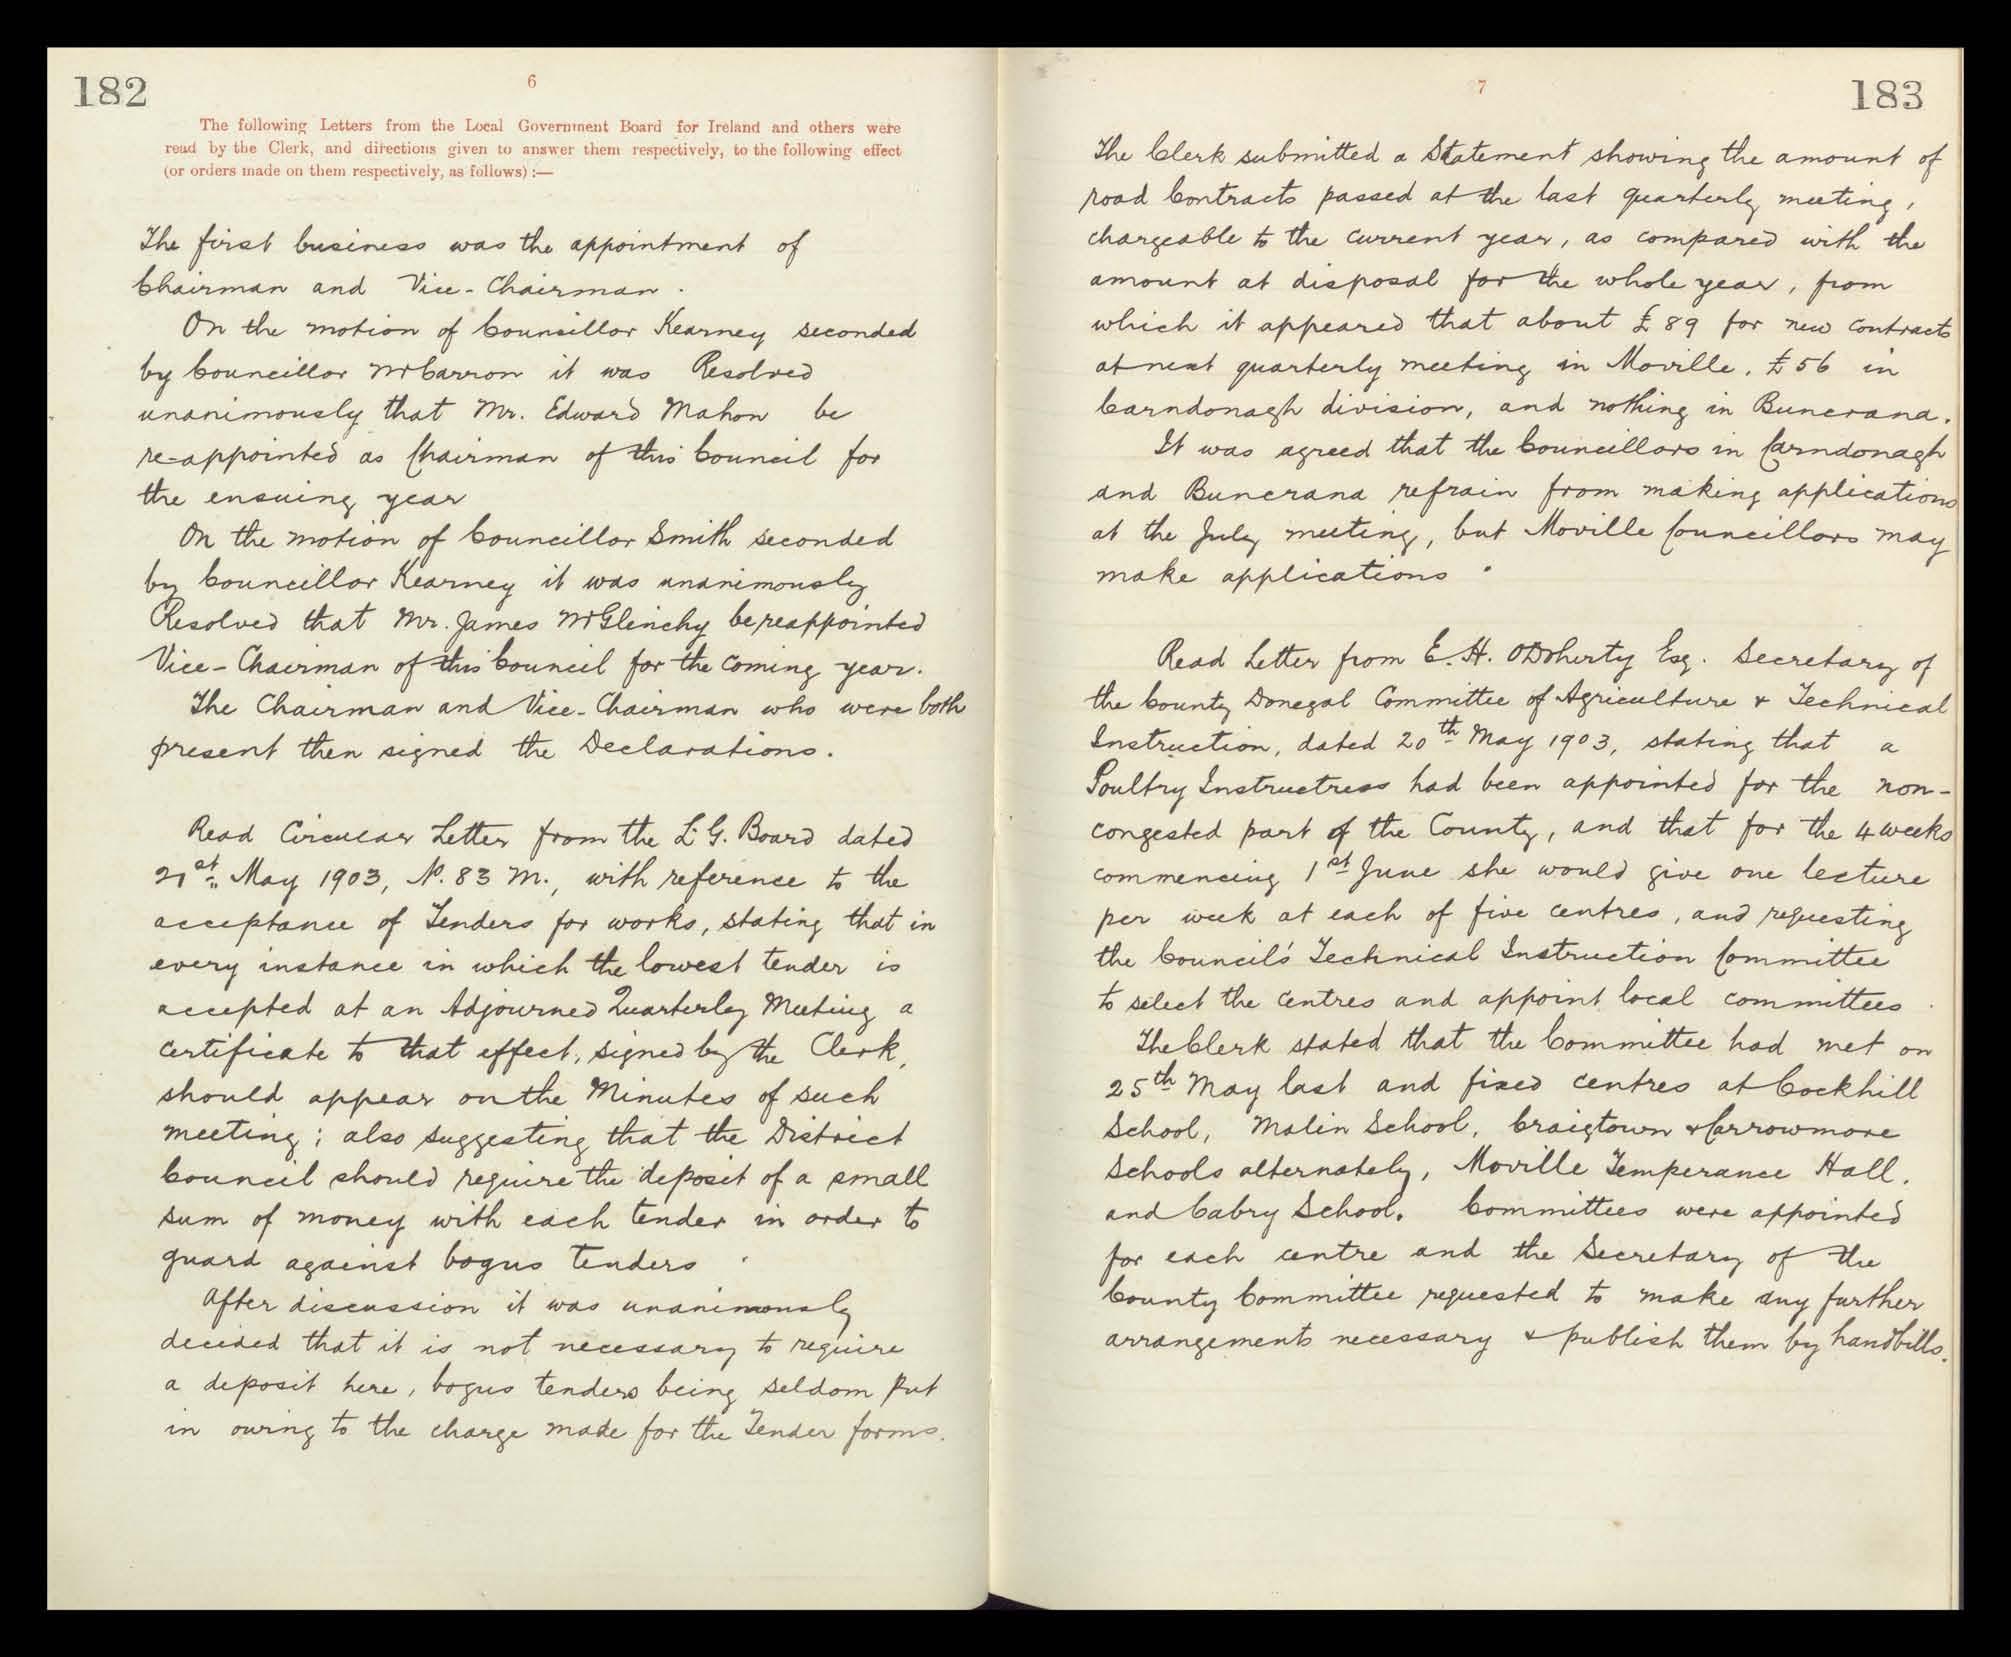 182
6
The following Letters from the Local Government Board for Ireland and others were
read by the Clerk, and directions given to answer them respectively, to the following effect
(or orders made on them respectively, as follows) :—
The first business was the appointment of
Chairman and Vice-Chairman.
On the motion of Councillor Kearney seconded
by Councillor McCarron it was Resolved
unanimously that Mr. Edward Mahon be
re-appointed as Chairman of this Council for
the ensuing year
On the motion of Councillor Smith seconded
by Councillor Kearney it was unanimously
Resolved that Mr. James McGlinchy be reappointed
Vice-Chairman of this Council for the coming year.
The Chairman and Vice-Chairman who were both
present then signed the Declarations.
Read Circular Letter from the L.G. Board dated
21st May 1903, No. 83 M., with reference to the
acceptance of Tenders for works, stating that in
every instance in which the lowest tender is
accepted at an Adjourned Quarterly Meeting a
certificate to that effect, signed by the Clerk,
should appear on the Minutes of such
meeting; also suggesting that the District
Council should require the deposit of a small
sum of money with each tender in order to
guard against bogus tenders.
After discussion it was unanimously
decided that it is not necessary to require
a deposit here, bogus tenders being seldom put
in owing to the charge made for the Tender forms.
7
183
The Clerk submitted a Statement showing the amount of
road Contracts passed at the last quarterly meeting,
chargeable to the current year, as compared with the
amount at disposal for the whole year, from
which it appeared that about £89 for new contracts
at next quarterly meeting in Moville, £56 in
Carndonagh division, and nothing in Buncrana.
It was agreed that the Councillors in Carndonagh
and Buncrana refrain from making applications
at the July meeting, but Moville Councillors may
make applications.
Read Letter from E. H. O'Doherty Esq. Secretary of
the County Donegal Committee of Agriculture & Technical
Instruction, dated 20th May 1903, stating that a
Poultry Instructress had been appointed for the non-
congested part of the County, and that for the 4 weeks
commencing 1st June she would give one lecture
per week at each of five centres, and requesting
the Council's Technical Instruction Committee
to select the centres and appoint local committees
The Clerk stated that the Committee had met on
25th May last and fixed centres at Cockhill
School, Malin School, Craigtown & Carrowmore
Schools alternately, Moville Temperance Hall,
and Cabry School. Committees were appointed
for each centre and the Secretary of the
County Committee requested to make any further
arrangements necessary & publish them by handbills.